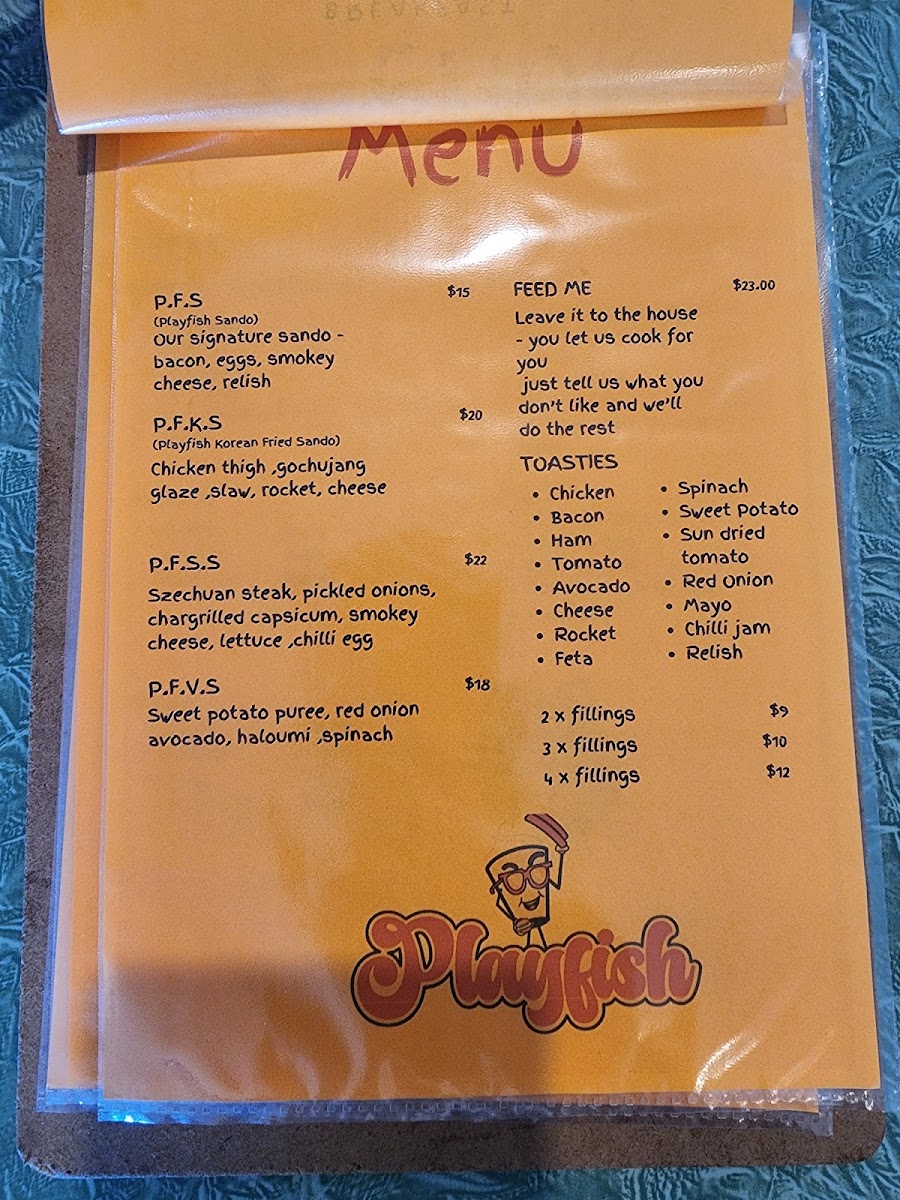 BREAKFAST
Menu
P.F.S $15
(Playfish Sando)
Our signature sando -
bacon, eggs, smokey
cheese, relish
P.F.K.S $20
(Playfish Korean Fried Sando)
Chicken thigh ,gochujang
glaze ,slaw, rocket, cheese
P.F.S.S $22
Szechuan steak, pickled onions,
chargrilled capsicum, smokey
cheese, lettuce ,chilli egg
P.F.V.S $18
Sweet potato puree, red onion
avocado, haloumi ,spinach
FEED ME $23.00
Leave it to the house
- you let us cook for
you
just tell us what you
don't like and we'll
do the rest
TOASTIES
• Chicken
• Bacon
• Ham
• Tomato
• Avocado
• Cheese
• Rocket
• Feta
• Spinach
• Sweet Potato
• Sun dried
tomato
• Red Onion
• Mayo
• Chilli jam
• Relish
2 x fillings $9
3 x fillings $10
4 x fillings $12
Playfish